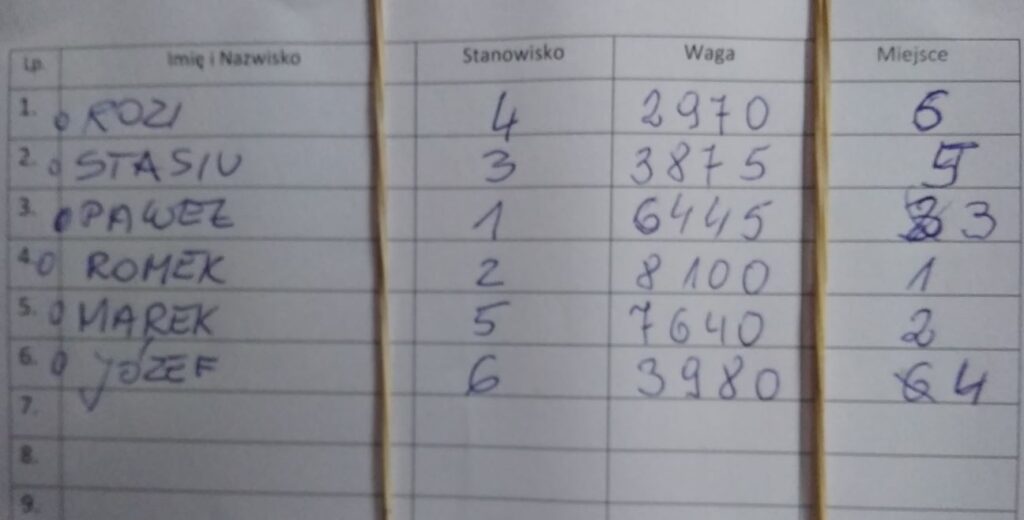 Lp. Imię i Nazwisko Stanowisko Waga Miejsce
1. ROZI 4 2970 6
2. STASIU 3 3875 5
3. PAWEŁ 1 6445 3
4. ROMEK 2 8100 1
5. MAREK 5 7640 2
6. JÓZEF 6 3980 4
7.
8.
9.